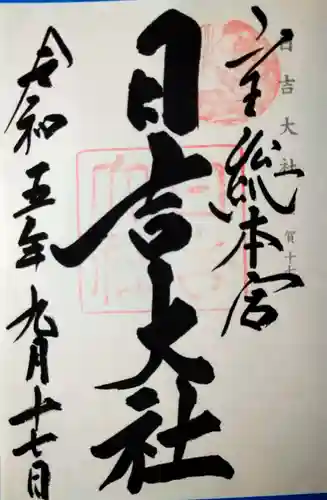 日吉大社
賀十七
主総本宮
日吉大社
令和五年九月十七日